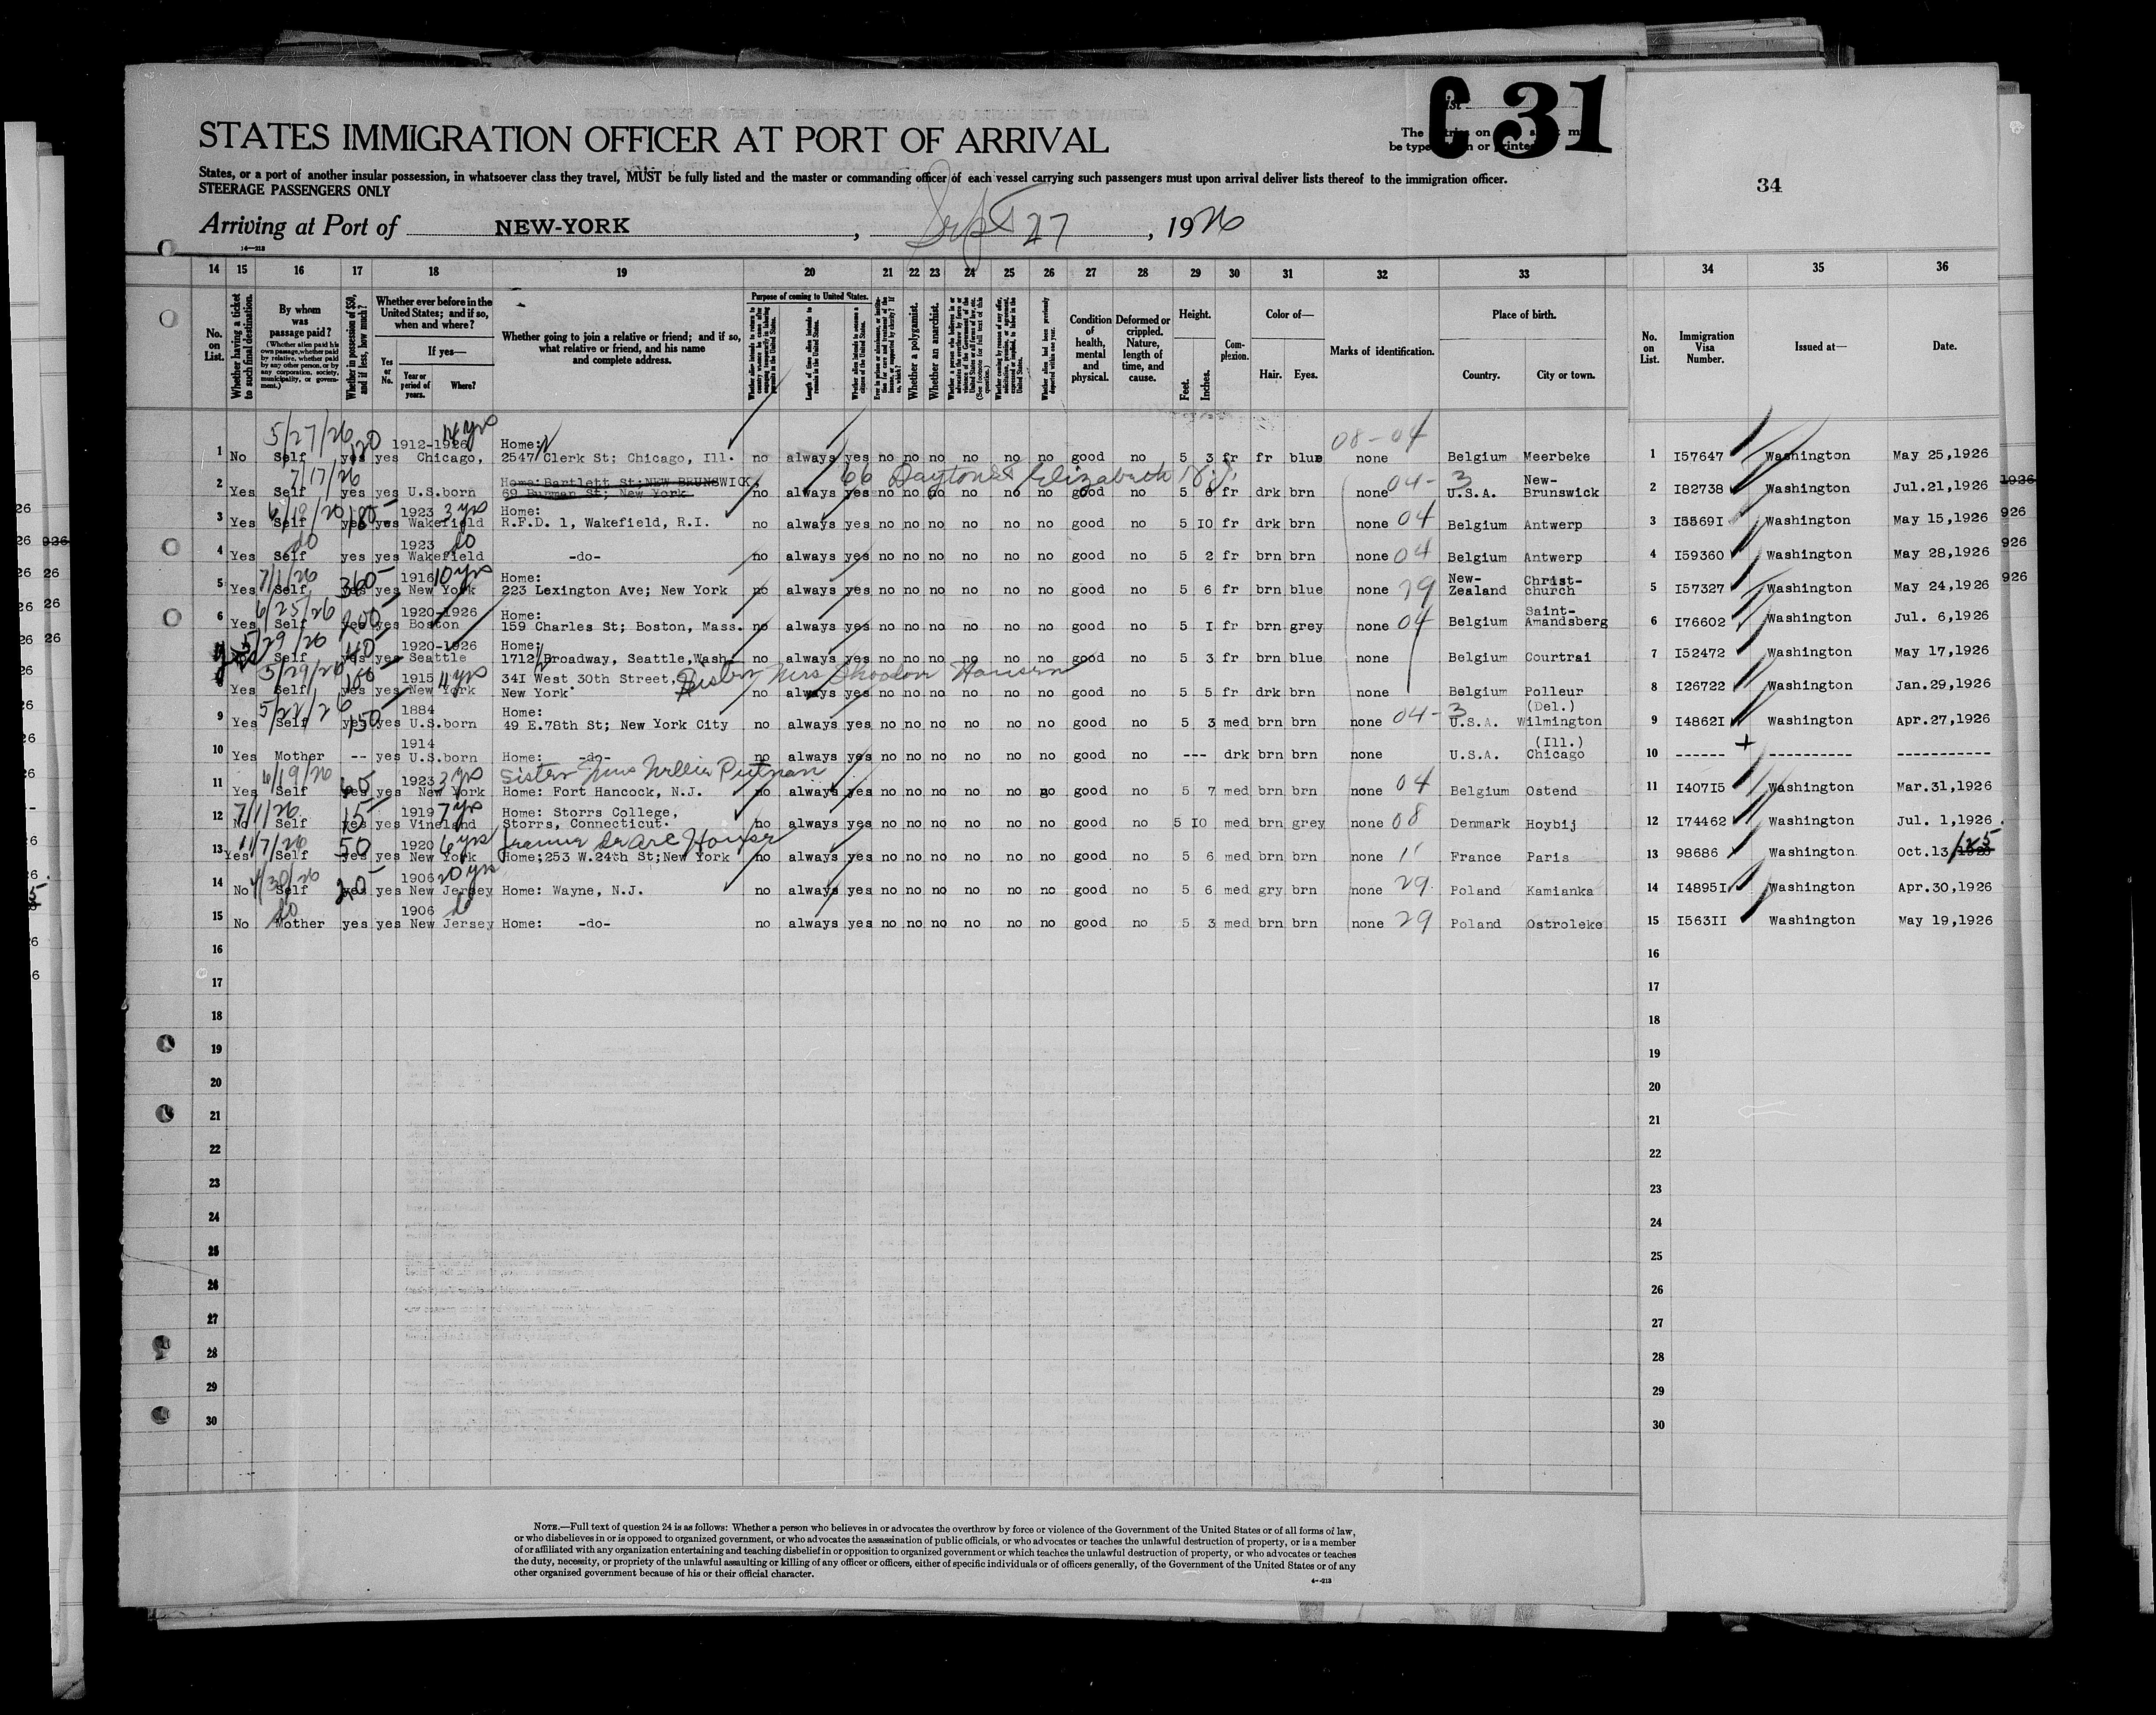 C 31
List
STATES IMMIGRATION OFFICER AT PORT OF ARRIVAL
The entries on
be type
or printed
States, or a port of another insular possession, in whatsoever class they travel, MUST be fully listed and the master or commanding officer of each vessel carrying such passengers must upon arrival deliver lists thereof to the immigration officer.
STEERAGE PASSENGERS ONLY
34
Arriving at Port of NEW-YORK, Sept 27, 1926
14—213
14 15 16 17 18 19 20 21 22 23 24 25 26 27 28 29 30 31 32 33 34 35 36
No. on List.
Whether having a ticket to such final destination.
By whom was passage paid?
(Whether alien paid his own passage, whether paid by relative, whether paid by any other person, or by any corporation, society, municipality, or government.)
Whether in possession of $50, and if less, how much?
Whether ever before in the United States; and if so, when and where?
Yes or No.
If yes—
Year or period of years.
Where?
Whether going to join a relative or friend; and if so, what relative or friend, and his name and complete address.
Purpose of coming to United States.
Length of time alien intends to remain in the United States.
Whether alien intends to become a citizen of the United States.
Whether a polygamist.
Whether an anarchist.
Whether alien had been previously deported within one year.
Condition of health, mental and physical.
Deformed or crippled. Nature, length of time, and cause.
Height.
Feet.
Inches.
Complexion.
Color of—
Hair.
Eyes.
Marks of identification.
Place of birth.
Country.
City or town.
No. on List.
Immigration Visa Number.
Issued at—
Date.
5/27/26 120 1912-1926 14 yrs Home: 08-04
1 No Self yes yes Chicago, 2547 Clerk St; Chicago, Ill. no always yes no no no no no no good no 5 3 fr fr blue none Belgium Meerbeke 1 I57647 Washington May 25,1926
7/17/26 Home: Bartlett St; NEW BRUNSWICK, 66 Dayton St Elizabeth N.J. 04-3 New-
2 Yes Self yes yes U.S.born 69 Burman St; New York no always yes no no no no no no good no 5 6 fr drk brn none U.S.A. Brunswick 2 I82738 Washington Jul.21,1926
6/19/26 180- 1923 3 yrs Home:
3 Yes Self yes yes Wakefield R.F.D. 1, Wakefield, R.I. no always yes no no no no no no good no 5 I0 fr drk brn none 04 Belgium Antwerp 3 Washington May 15,1926
do 1923 do
4 Yes Self yes yes Wakefield -do- no always yes no no no no no no good no 5 2 fr brn brn none 04 Belgium Antwerp 4 I59360 Washington May 28,1926
7/1/26 360- 1916 10 yrs Home: New- Christ-
5 Yes Self yes yes New York 223 Lexington Ave; New York no always yes no no no no no no good no 5 6 fr brn blue none 29 Zealand church 5 I57327 Washington May 24,1926
6/25/26 200- 1920-1926 Home: Saint-
6 Yes Self yes yes Boston 159 Charles St; Boston, Mass. no always yes no no no no no no good no 5 I fr brn grey none 04 Belgium Amandsberg 6 I76602 Washington Jul. 6,1926
5/29/26 40- 1920-1926 Home:
7 Self yes yes Seattle 1712 Broadway, Seattle,Wash. no always yes no no no no no no good no 5 3 fr brn blue none Belgium Courtrai 7 I52472 Washington May 17,1926
5/29/26 100- 1915 11 yrs 34I West 30th Street, Sister Mrs Hansen
8 Yes Self yes yes New York New York no always yes no no no no no no good no 5 5 fr drk brn none Belgium Polleur 8 I26722 Washington Jan.29,1926
5/22/26 150- 1884 Home: 04-3 (Del.)
9 Yes Self yes yes U.S.born 49 E.78th St; New York City no always yes no no no no no no good no 5 3 med brn brn none U.S.A. Wilmington 9 I4862I Washington Apr.27,1926
1914 (Ill.)
10 Yes Mother -- yes U.S.born Home: -do- no always yes no no no no no no good no --- drk brn brn none U.S.A. Chicago 10 ------ ----------- -----------
6/19/26 65- 1923 3 yrs Sister Miss Nellie Putnam
11 Yes Self yes yes New York Home: Fort Hancock, N.J. no always yes no no no no no no good no 5 7 med brn brn none 04 Belgium Ostend 11 I407I5 Washington Mar.31,1926
7/1/26 15- 1919 7 yrs Home: Storrs College,
12 No Self yes yes Vineland Storrs, Connecticut. no always yes no no no no no no good no 5 I0 med brn grey none 08 Denmark Hoybij 12 I74462 Washington Jul. 1,1926
11/7/26 50 1920 6 yrs Jeanne D'Arc House
13 Yes Self yes yes New York Home;253 W.24th St;New York no always yes no no no no no no good no 5 6 med brn brn none 11 France Paris 13 98686 Washington Oct.13,1925
4/30/26 20- 1906 20 yrs
14 No Self yes yes New Jersey Home: Wayne, N.J. no always yes no no no no no no good no 5 6 med gry brn none 29 Poland Kamianka 14 I4895I Washington Apr.30,1926
do 1906 do
15 No Mother yes yes New Jersey Home: -do- no always yes no no no no no no good no 5 3 med brn brn none 29 Poland Ostroleke 15 I563II Washington May 19,1926
16 16
17 17
18 18
19 19
20 20
21 21
22 22
23 23
24 24
25 25
26 26
27 27
28 28
29 29
30 30
NOTE.—Full text of question 24 is as follows: Whether a person who believes in or advocates the overthrow by force or violence of the Government of the United States or of all forms of law,
or who disbelieves in or is opposed to organized government, or who advocates the assassination of public officials, or who advocates or teaches the unlawful destruction of property, or is a member
of or affiliated with any organization entertaining and teaching disbelief in or opposition to organized government or which teaches the unlawful destruction of property, or who advocates or teaches
the duty, necessity, or propriety of the unlawful assaulting or killing of any officer or officers, either of specific individuals or of officers generally, of the Government of the United States or of any
other organized government because of his or their official character.